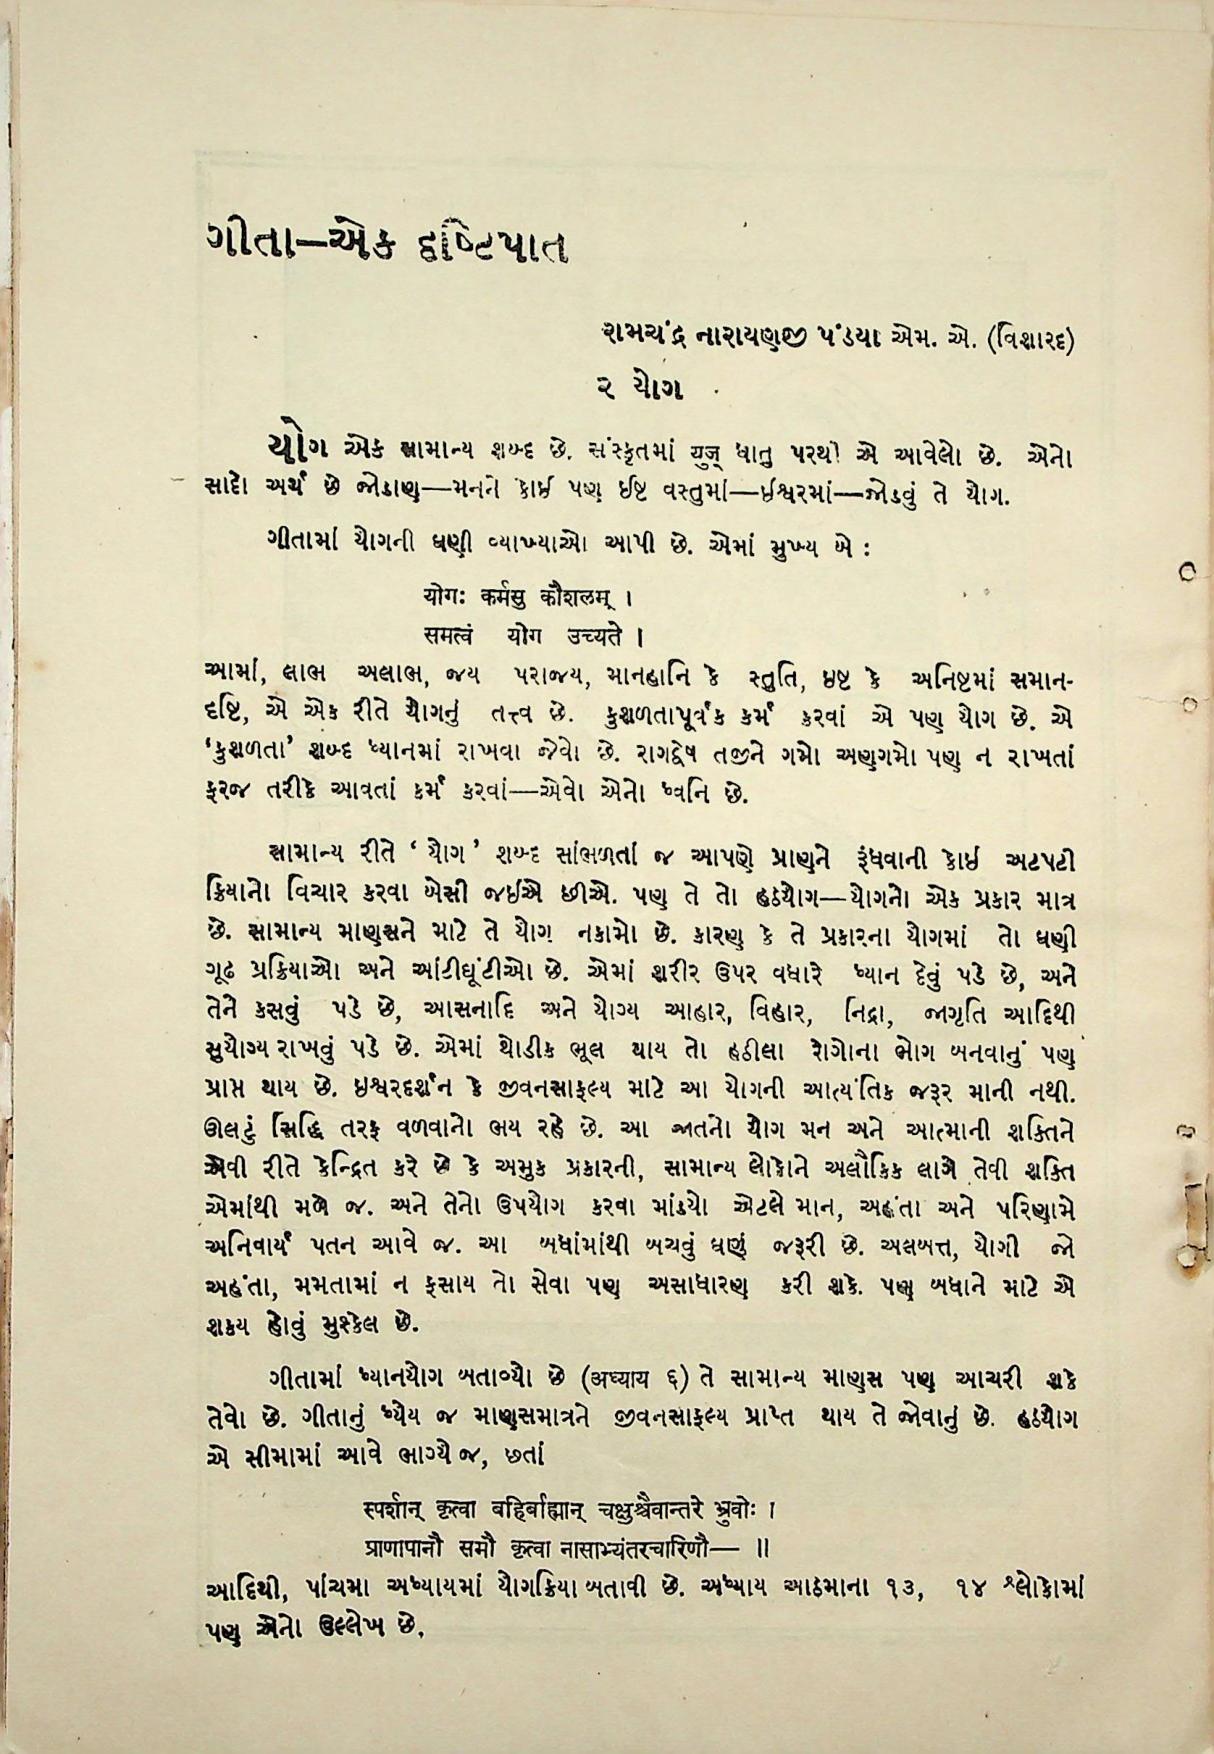 ગીતા—એક દૃષ્ટિપાત
રામચંદ્ર નારાયણજી પંડયા એમ. એ. (વિશારદ)
૨ યોગ
યોગ એક સામાન્ય શબ્દ છે. સંસ્કૃતમાં યુજ્ ધાતુ પરથી એ આવેલો છે. એનો
સાદો અર્થ છે જોડાણ—મનને કોઈ પણ ઈષ્ટ વસ્તુમાં—ઈશ્વરમાં—જોડવું તે યોગ.
ગીતામાં યોગની ઘણી વ્યાખ્યાઓ આપી છે. એમાં મુખ્ય બે :
योगः कर्मसु कौशलम् ।
समत्वं योग उच्यते ।
આમાં, લાભ અલાભ, જય પરાજય, માનહાનિ કે સ્તુતિ, ઈષ્ટ કે અનિષ્ટમાં સમાન-
દૃષ્ટિ, એ એક રીતે યોગનું તત્ત્વ છે. કુશળતાપૂર્વક કર્મ કરવાં એ પણ યોગ છે. એ
‘કુશળતા’ શબ્દ ધ્યાનમાં રાખવા જેવો છે. રાગદ્વેષ તજીને ગમો અણગમો પણ ન રાખતાં
ફરજ તરીકે આવતાં કર્મ કરવાં—એવો એનો ધ્વનિ છે.
સામાન્ય રીતે ‘યોગ’ શબ્દ સાંભળતાં જ આપણે પ્રાણને રૂંધવાની કોઈ અટપટી
ક્રિયાનો વિચાર કરવા બેસી જઈએ છીએ. પણ તે તો હઠયોગ—યોગનો એક પ્રકાર માત્ર
છે. સામાન્ય માણસને માટે તે યોગ નકામો છે. કારણ કે તે પ્રકારના યોગમાં તો ઘણી
ગૂઢ પ્રક્રિયાઓ અને આંટીઘૂંટીઓ છે. એમાં શરીર ઉપર વધારે ધ્યાન દેવું પડે છે, અને
તેને કસવું પડે છે, આસનાદિ અને યોગ્ય આહાર, વિહાર, નિદ્રા, જાગૃતિ આદિથી
સુયોગ્ય રાખવું પડે છે. એમાં થોડીક ભૂલ થાય તો હઠીલા રોગોના ભોગ બનવાનું પણ
પ્રાપ્ત થાય છે. ઈશ્વરદર્શન કે જીવનસાફલ્ય માટે આ યોગની આત્યંતિક જરૂર માની નથી.
ઊલટું સિદ્ધિ તરફ વળવાનો ભય રહે છે. આ જાતનો યોગ મન અને આત્માની શક્તિને
એવી રીતે કેન્દ્રિત કરે છે કે અમુક પ્રકારની, સામાન્ય લોકોને અલૌકિક લાગે તેવી શક્તિ
એમાંથી મળે જ. અને તેનો ઉપયોગ કરવા માંડયો એટલે માન, અહંતા અને પરિણામે
અનિવાર્ય પતન આવે જ. આ બધાંમાંથી બચવું ઘણું જરૂરી છે. અલબત્ત, યોગી જો
અહંતા, મમતામાં ન ફસાય તો સેવા પણ અસાધારણ કરી શકે. પણ બધાને માટે એ
શક્ય હોવું મુશ્કેલ છે.
ગીતામાં ધ્યાનયોગ બતાવ્યો છે (અધ્યાય ૬) તે સામાન્ય માણસ પણ આચરી શકે
તેવો છે. ગીતાનું ધ્યેય જ માણસમાત્રને જીવનસાફલ્ય પ્રાપ્ત થાય તે જોવાનું છે. હઠયોગ
એ સીમામાં આવે ભાગ્યે જ, છતાં
स्पर्शान् कृत्वा बहिर्बाह्यान् चक्षुश्चैवान्तरे भ्रुवोः ।
प्राणापानौ समौ कृत्वा नासाभ्यंतरचारिणौ— ॥
આદિથી, પાંચમા અધ્યાયમાં યોગક્રિયા બતાવી છે. અધ્યાય આઠમાના ૧૩, ૧૪ શ્લોકોમાં
પણ એનો ઉલ્લેખ છે.